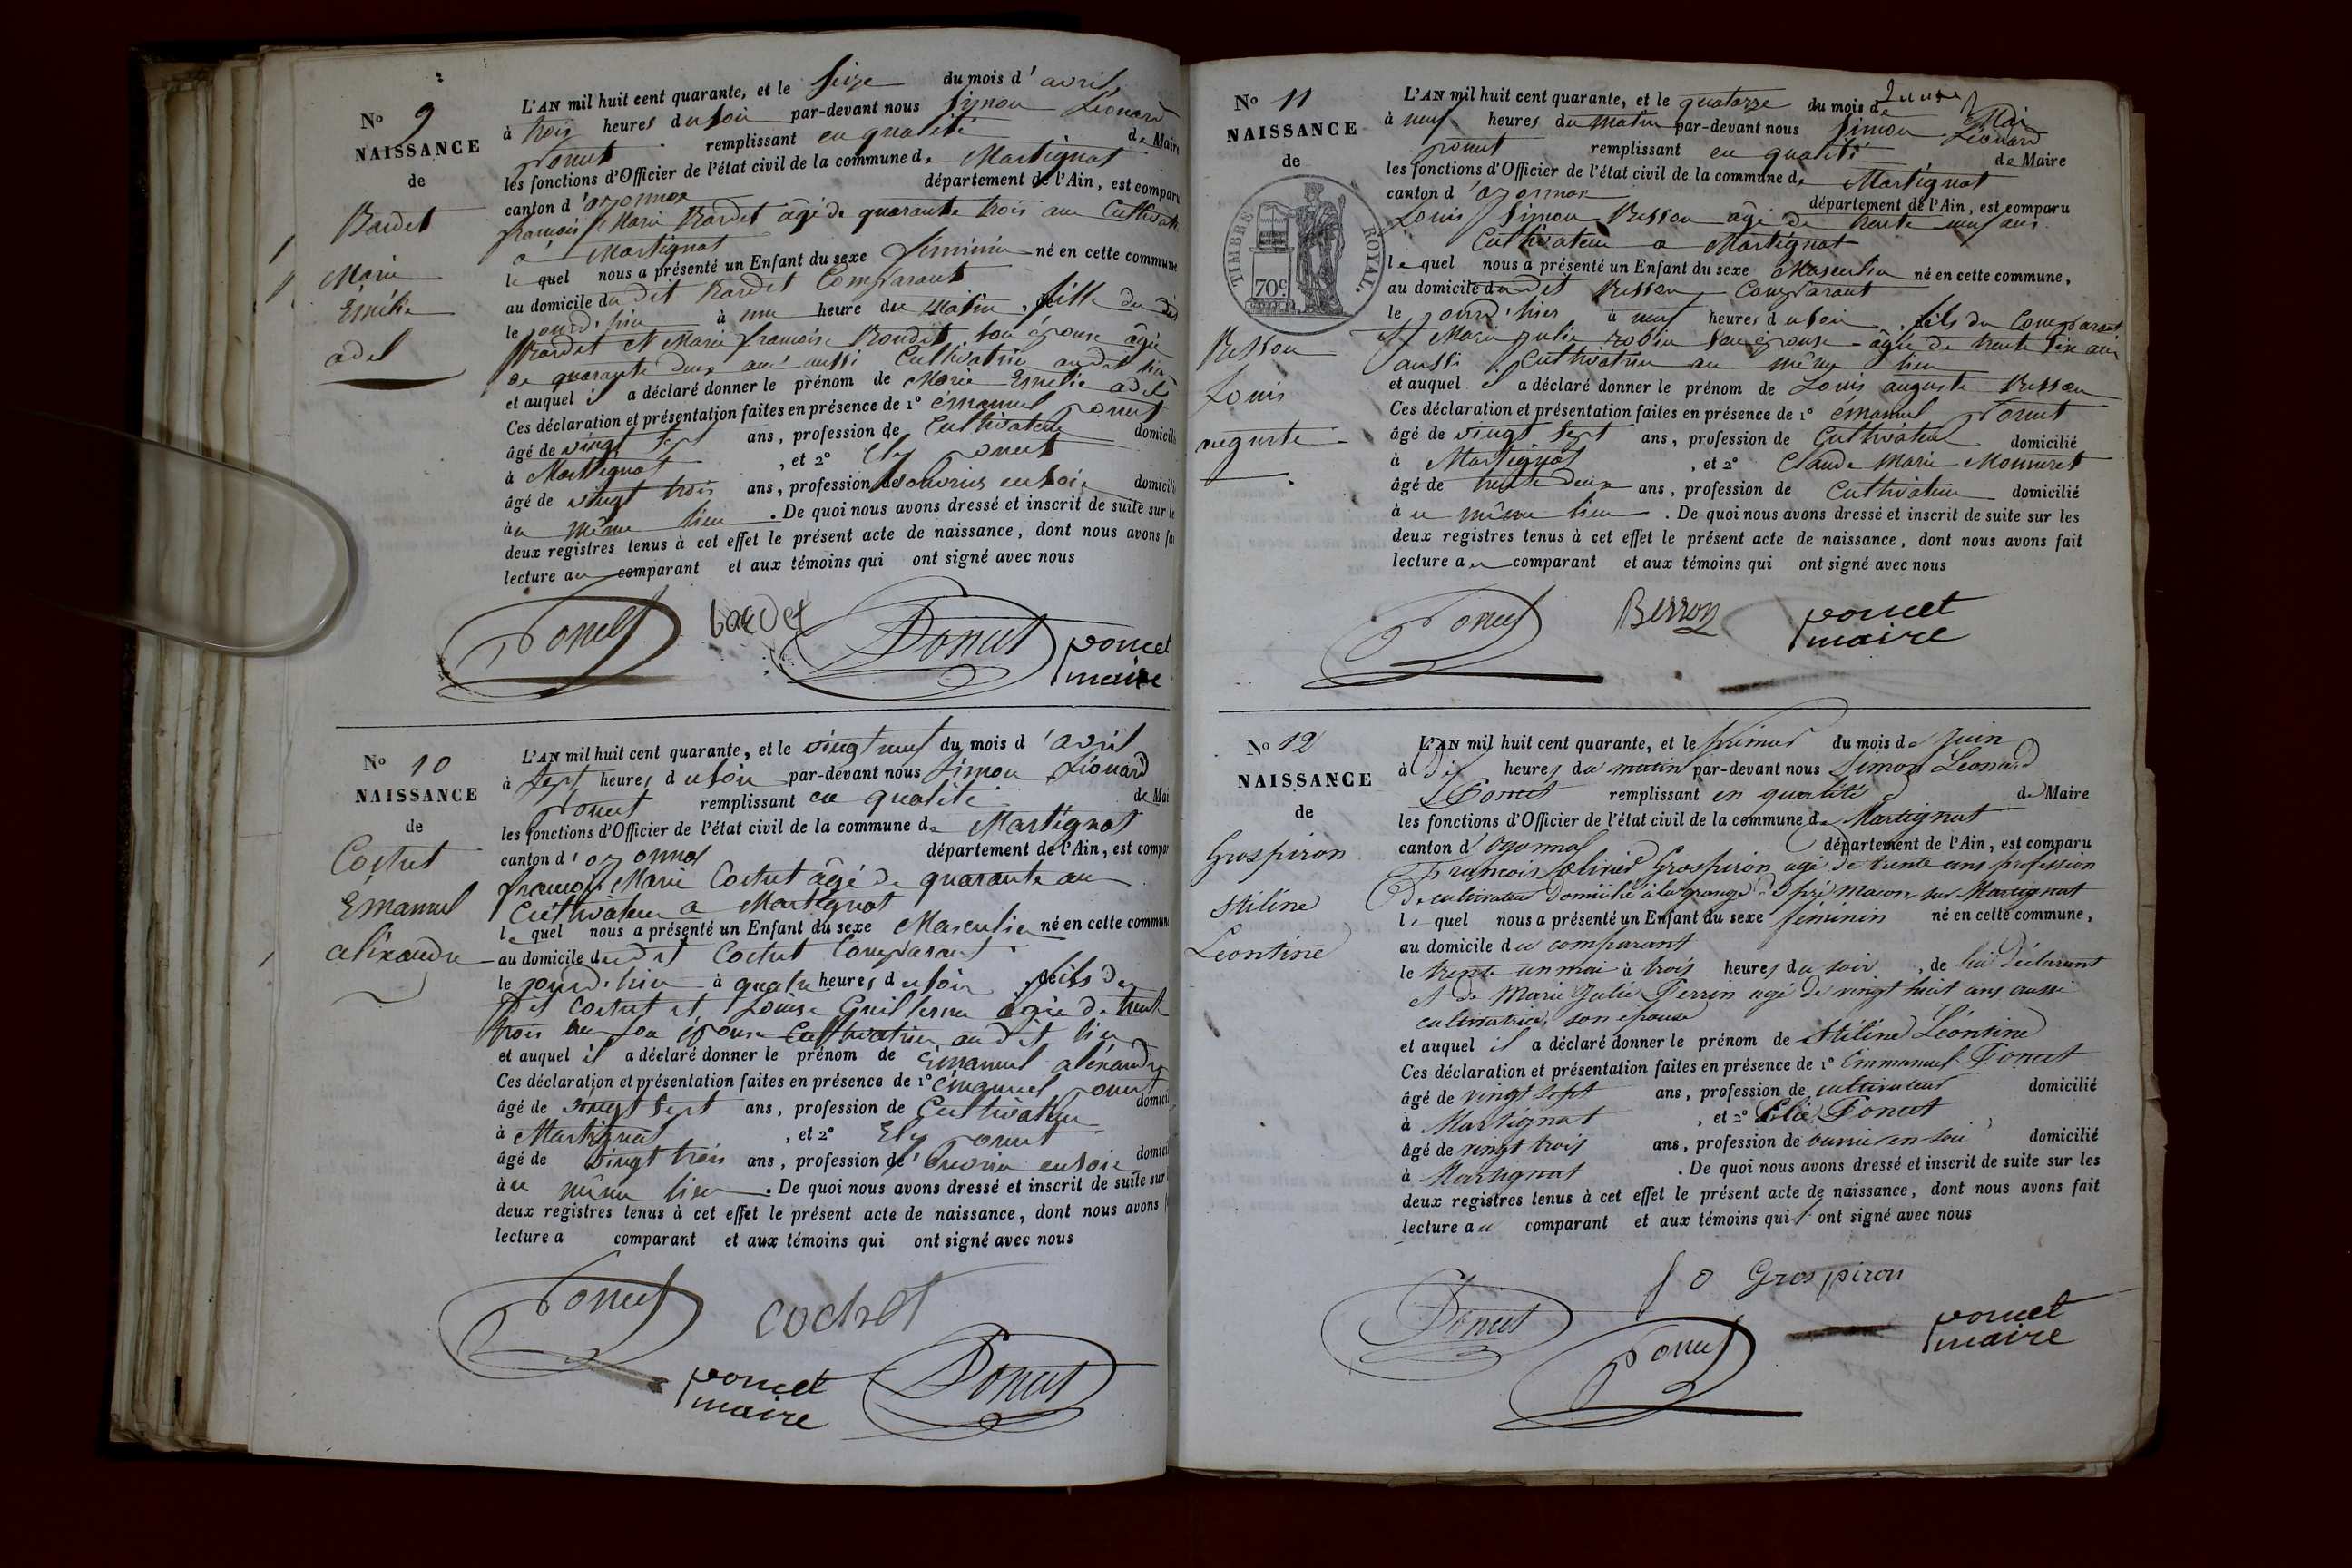 No 9
NAISSANCE
de
Bardet
Marie
Émélie
adel
L'AN mil huit cent quarante, et le seize du mois d'avril
à trois heures du soir par-devant nous Simon Léonard
Poncet remplissant en qualité de Maire
les fonctions d'Officier de l'état civil de la commune de Martignat
canton d'oyonnax département de l'Ain, est comparu
françois Marie Bardet âgé de quarante trois ans Cultivateur
à Martignat
le quel nous a présenté un Enfant du sexe féminin né en cette commune
au domicile du dit Bardet Comparant
le jourd'hui à une heure du Matin, fille du dit
Bardet et Marie françoise Bondet son épouse âgée
de quarante deux ans aussi Cultivatrice audit lieu
et auquel il a déclaré donner le prénom de Marie Emélie adel
Ces déclaration et présentation faites en présence de 1° émanuel Poncet
âgé de vingt sept ans, profession de Cultivateur domicilié
à Martignat, et 2° Ely Poncet
âgé de vingt trois ans, profession d'ouvrier en soie domicilié
au même lieu. De quoi nous avons dressé et inscrit de suite sur le
deux registres tenus à cet effet le présent acte de naissance, dont nous avons fai
lecture au comparant et aux témoins qui ont signé avec nous
Poncet bardet Poncet poncet
maire
No 10
NAISSANCE
de
Cochet
Émanuel
alixandre
L'AN mil huit cent quarante, et le vingt neuf du mois d'avril
à sept heures du soir par-devant nous Simon Léonard
Poncet remplissant en qualité de Mai
les fonctions d'Officier de l'état civil de la commune de Martignat
canton d'oyonnax département de l'Ain, est compar
françois Marie Cochet âgé de quarante an
Cultivateur a Martignat
le quel nous a présenté un Enfant du sexe Masculin né en cette commune
au domicile du dit Cochet Comparant
le jourd'hui à quatre heures du soir, fils du
dit Cochet et Louise Guillerme âgée de trente
trois ans son épouse Cultivatrice audit lieu
et auquel il a déclaré donner le prénom de Émanuel alexandre
Ces déclaration et présentation faites en présence de 1° émanuel Poncet
âgé de vingt sept ans, profession de Cultivateur domicil
à Martignat, et 2° Ely Poncet
âgé de vingt trois ans, profession d'ouvrier en soie domicil
au même lieu. De quoi nous avons dressé et inscrit de suite sur
deux registres tenus à cet effet le présent acte de naissance, dont nous avons
lecture a comparant et aux témoins qui ont signé avec nous
Poncet cochet
poncet Poncet
maire
No 11
NAISSANCE
de
TIMBRE ROYAL.
70c
Besson
Louis
auguste
L'AN mil huit cent quarante, et le quatorze du mois de Mai
à neuf heures du Matin par-devant nous Simon Léonard
Poncet remplissant en qualité de Maire
les fonctions d'Officier de l'état civil de la commune de Martignat
canton d'oyonnax département de l'Ain, est comparu
Louis Simon Besson âgé de trente neuf ans
Cultivateur a Martignat
le quel nous a présenté un Enfant du sexe Masculin né en cette commune,
au domicile du dit Besson Comparant
le jourd'hier à neuf heures du soir, fils du Comparant
et Marie julie robin son épouse âgée de trente six ans
aussi Cultivatrice au même lieu
et auquel il a déclaré donner le prénom de Louis auguste Besson
Ces déclaration et présentation faites en présence de 1° émanuel Poncet
âgé de vingt sept ans, profession de Cultivateur domicilié
à Martignat, et 2° Claude Marie Monneret
âgé de trente deux ans, profession de Cultivateur domicilié
au même lieu. De quoi nous avons dressé et inscrit de suite sur les
deux registres tenus à cet effet le présent acte de naissance, dont nous avons fait
lecture au comparant et aux témoins qui ont signé avec nous
Poncet Berron poncet
maire
No 12
NAISSANCE
de
Grospiron
Stéline
Léontine
L'AN mil huit cent quarante, et le premier du mois de juin
à dix heures du matin par-devant nous Simon Léonard
Poncet remplissant en qualité de Maire
les fonctions d'Officier de l'état civil de la commune de Martignat
canton d'Oyonnax département de l'Ain, est comparu
François Olivier Grospiron agé de trente ans profession
De cultivateur domicilié à la grange de pré Macon, sur Martignat
le quel nous a présenté un Enfant du sexe féminin né en cette commune,
au domicile du comparant
le trente un mai à trois heures du soir, de lui déclarant
et de Marie Julie Perrin agé de vingt huit ans aussi
cultivatrice, son épouse
et auquel il a déclaré donner le prénom de Stéline Léontine
Ces déclaration et présentation faites en présence de 1° Emmanuel Poncet
âgé de vingt sept ans, profession de cultivateur domicilié
à Martignat, et 2° Elie Poncet
âgé de vingt trois ans, profession de ouvrier en soie domicilié
à Martignat. De quoi nous avons dressé et inscrit de suite sur les
deux registres tenus à cet effet le présent acte de naissance, dont nous avons fait
lecture au comparant et aux témoins qui ont signé avec nous
f o Grospiron
Poncet Poncet poncet
maire